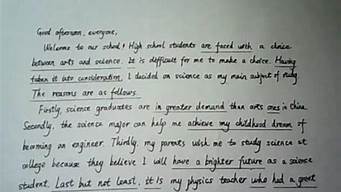 Good afternoon, everyone,
Welcome to our school! High school students are faced with a choice
between arts and science. It is difficult for me to make a choice. Having
taken it into consideration, I decided on science as my main subject of study.
The reasons are as follows.
Firstly, science graduates are in greater demand than arts ones in China.
Secondly, the science major can help me achieve my childhood dream of
becoming an engineer. Thirdly, my parents wish me to study science at
college because they believe I will have a brighter future as a science
student. Last but not least, it is my physics teacher who had a great